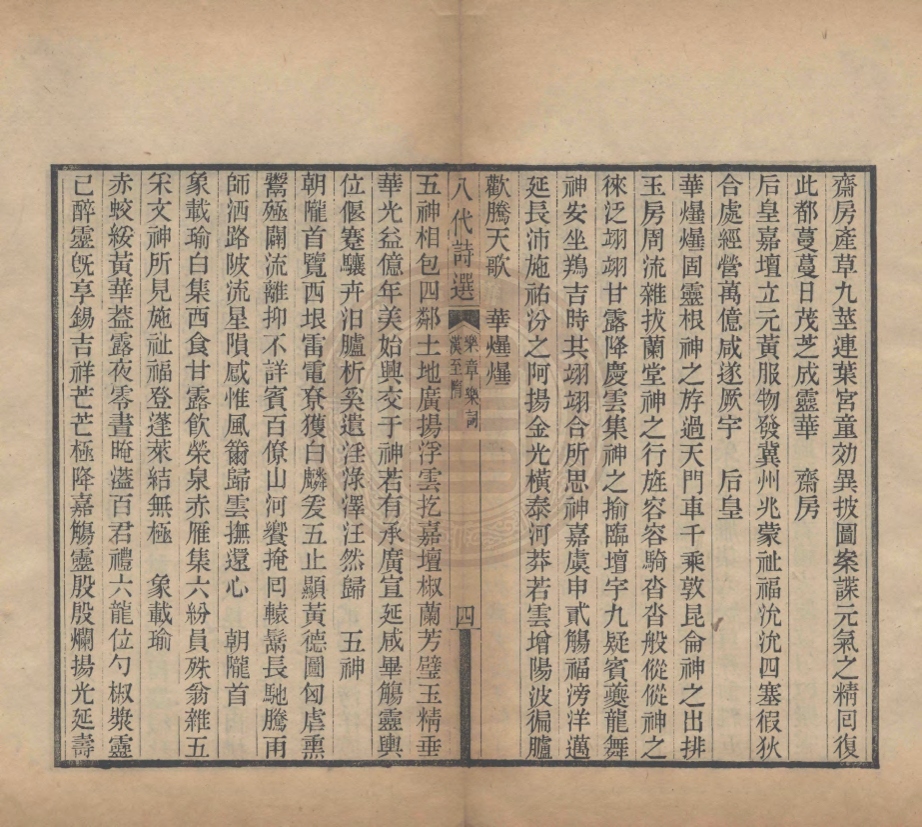 齋房產草九莖連葉宮童効異披圖案諜元氣之精囘復
此都蔓蔓日茂芝成靈華　齋房
后皇嘉壇立元黃服物發冀州兆蒙祉福沇沇四塞假狄
合處經營萬億咸遂厥宇　后皇
華爗爗固靈根神之斿過天門車千乘敦昆侖神之出排
玉房周流雜拔蘭堂神之行旌容容騎沓沓般傱傱神之
徠泛翊翊甘露降慶雲集神之揄臨壇宇九疑賓夔龍舞
神安坐鵕吉時共翊翊合所思神嘉虞申貳觴福滂洋邁
延長沛施祐汾之阿揚金光橫泰河莽若雲增陽波徧臚
歡騰天歌　華爗爗
八代詩選　樂章樂詞　漢至隋　四
五神相包四鄰土地廣揚浮雲扢嘉壇椒蘭芳璧玉精垂
華光益億年美始興交于神若有承廣宣延咸畢觴靈輿
位偃蹇驤卉汨臚析奚遺淫淥澤汪然歸　五神
朝隴首覽西垠雷電尞獲白麟爰五止顯黃德圖匈虐熏
鬻殛闢流離抑不詳賓百僚山河饗掩囘轅鬗長馳騰雨
師洒路陂流星隕感惟風籋歸雲撫還心　朝隴首
象載瑜白集西食甘露飲榮泉赤雁集六紛員殊翁雜五
采文神所見施祉福登蓬萊結無極　象載瑜
赤蛟綏黃華葢露夜零晝晻溘百君禮六龍位勺椒漿靈
已醉靈旣享錫吉祥芒芒極降嘉觴靈殷殷爛揚光延壽